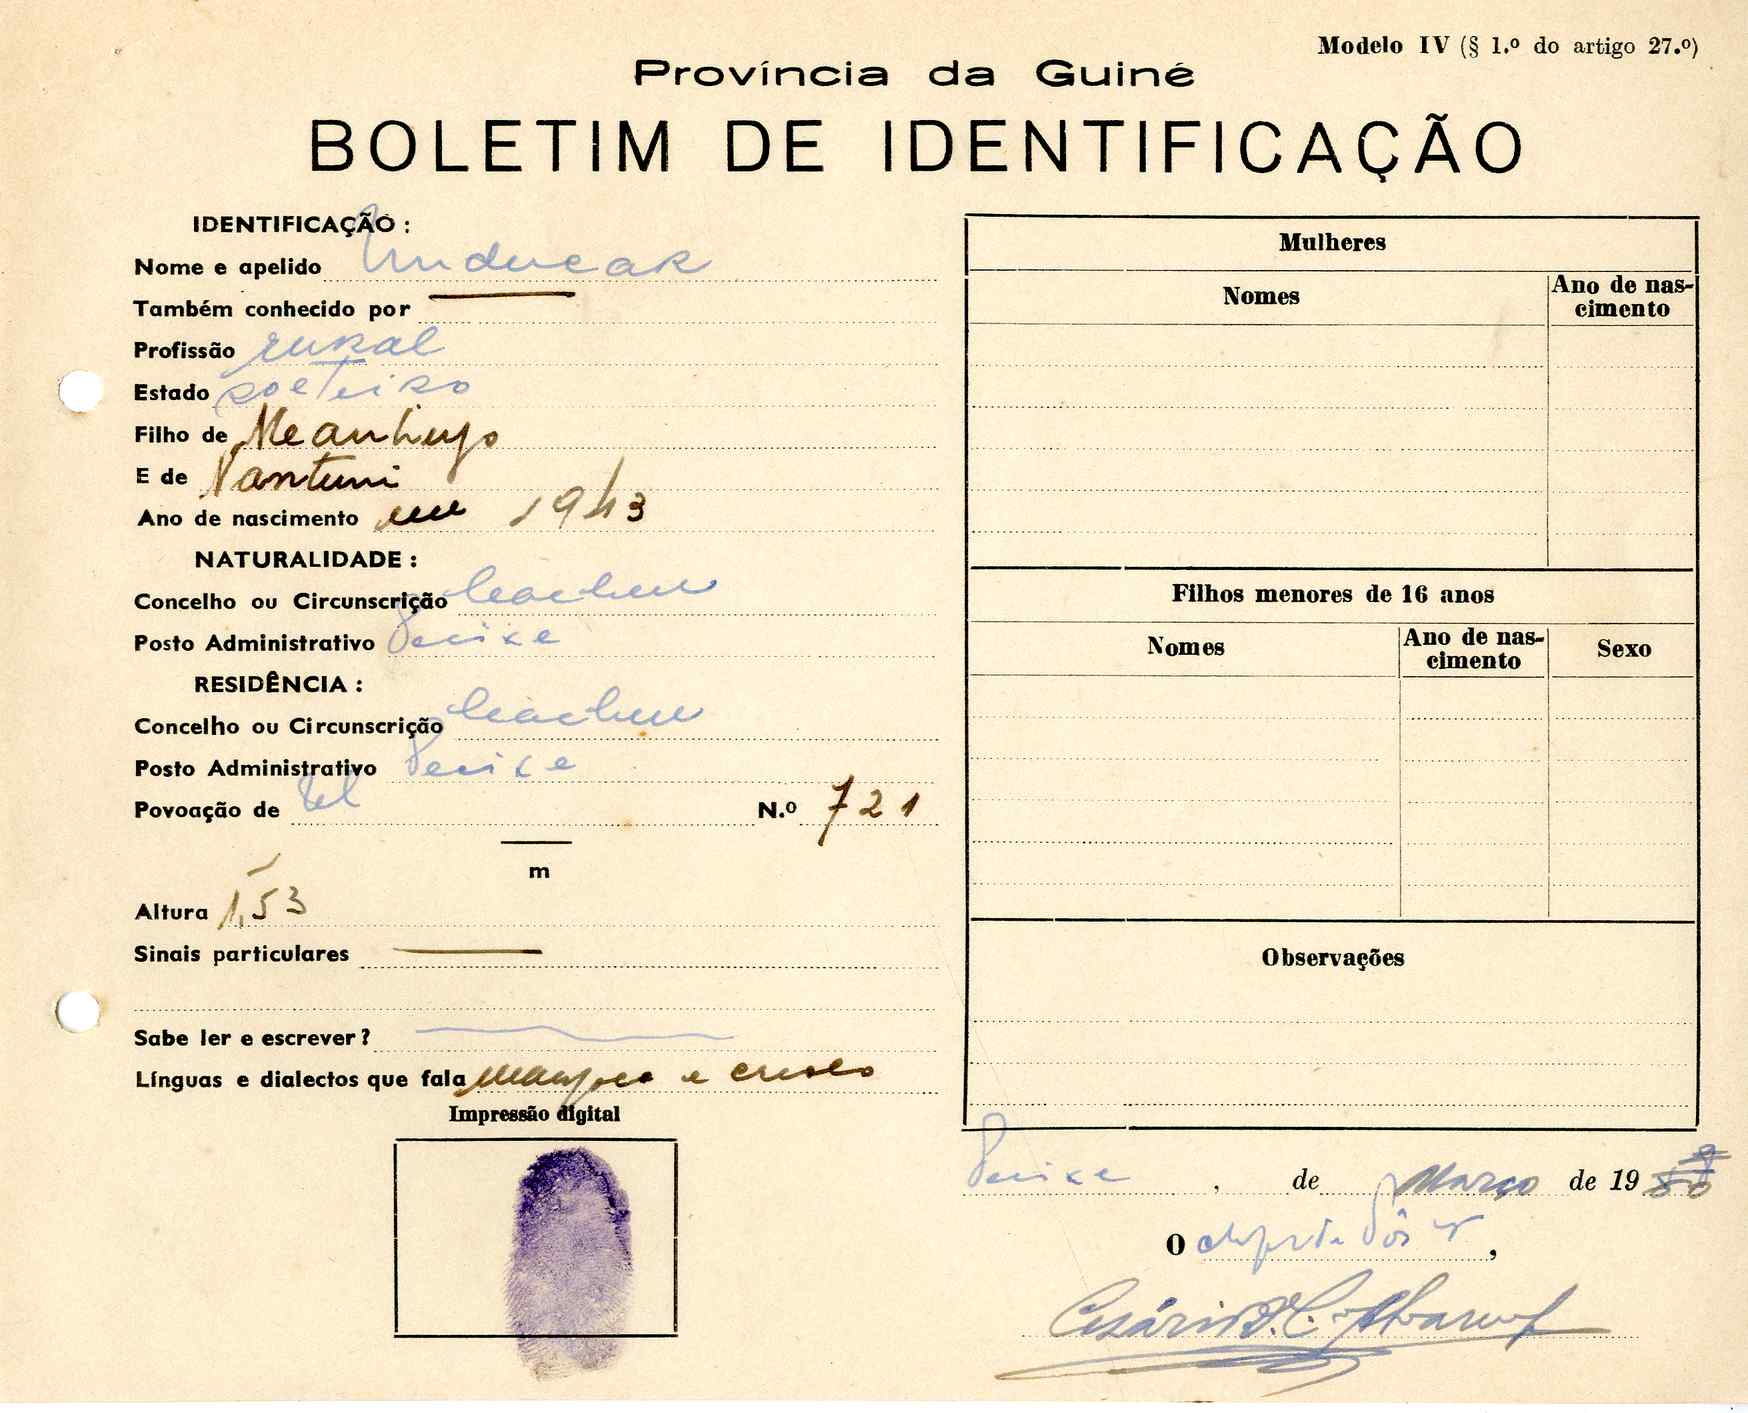 Modelo IV (§ 1.º do artigo 27.º)
Província da Guiné
BOLETIM DE IDENTIFICAÇÃO
IDENTIFICAÇÃO :
Nome e apelido
Também conhecido por
Profissão rural
Estado solteiro
Filho de
E de
Ano de nascimento em 1943
NATURALIDADE :
Concelho ou Circunscrição Cacheu
Posto Administrativo Pecixe
RESIDÊNCIA :
Concelho ou Circunscrição Cacheu
Posto Administrativo Pecixe
Povoação de N.º 721
m
Altura 1,53
Sinais particulares
Sabe ler e escrever ?
Línguas e dialectos que fala e crioulo
Impressão digital
Mulheres
Nomes Ano de nas-
cimento
Filhos menores de 16 anos
Nomes Ano de nas-
cimento Sexo
Observações
Pecixe , de Março de 19
O ,